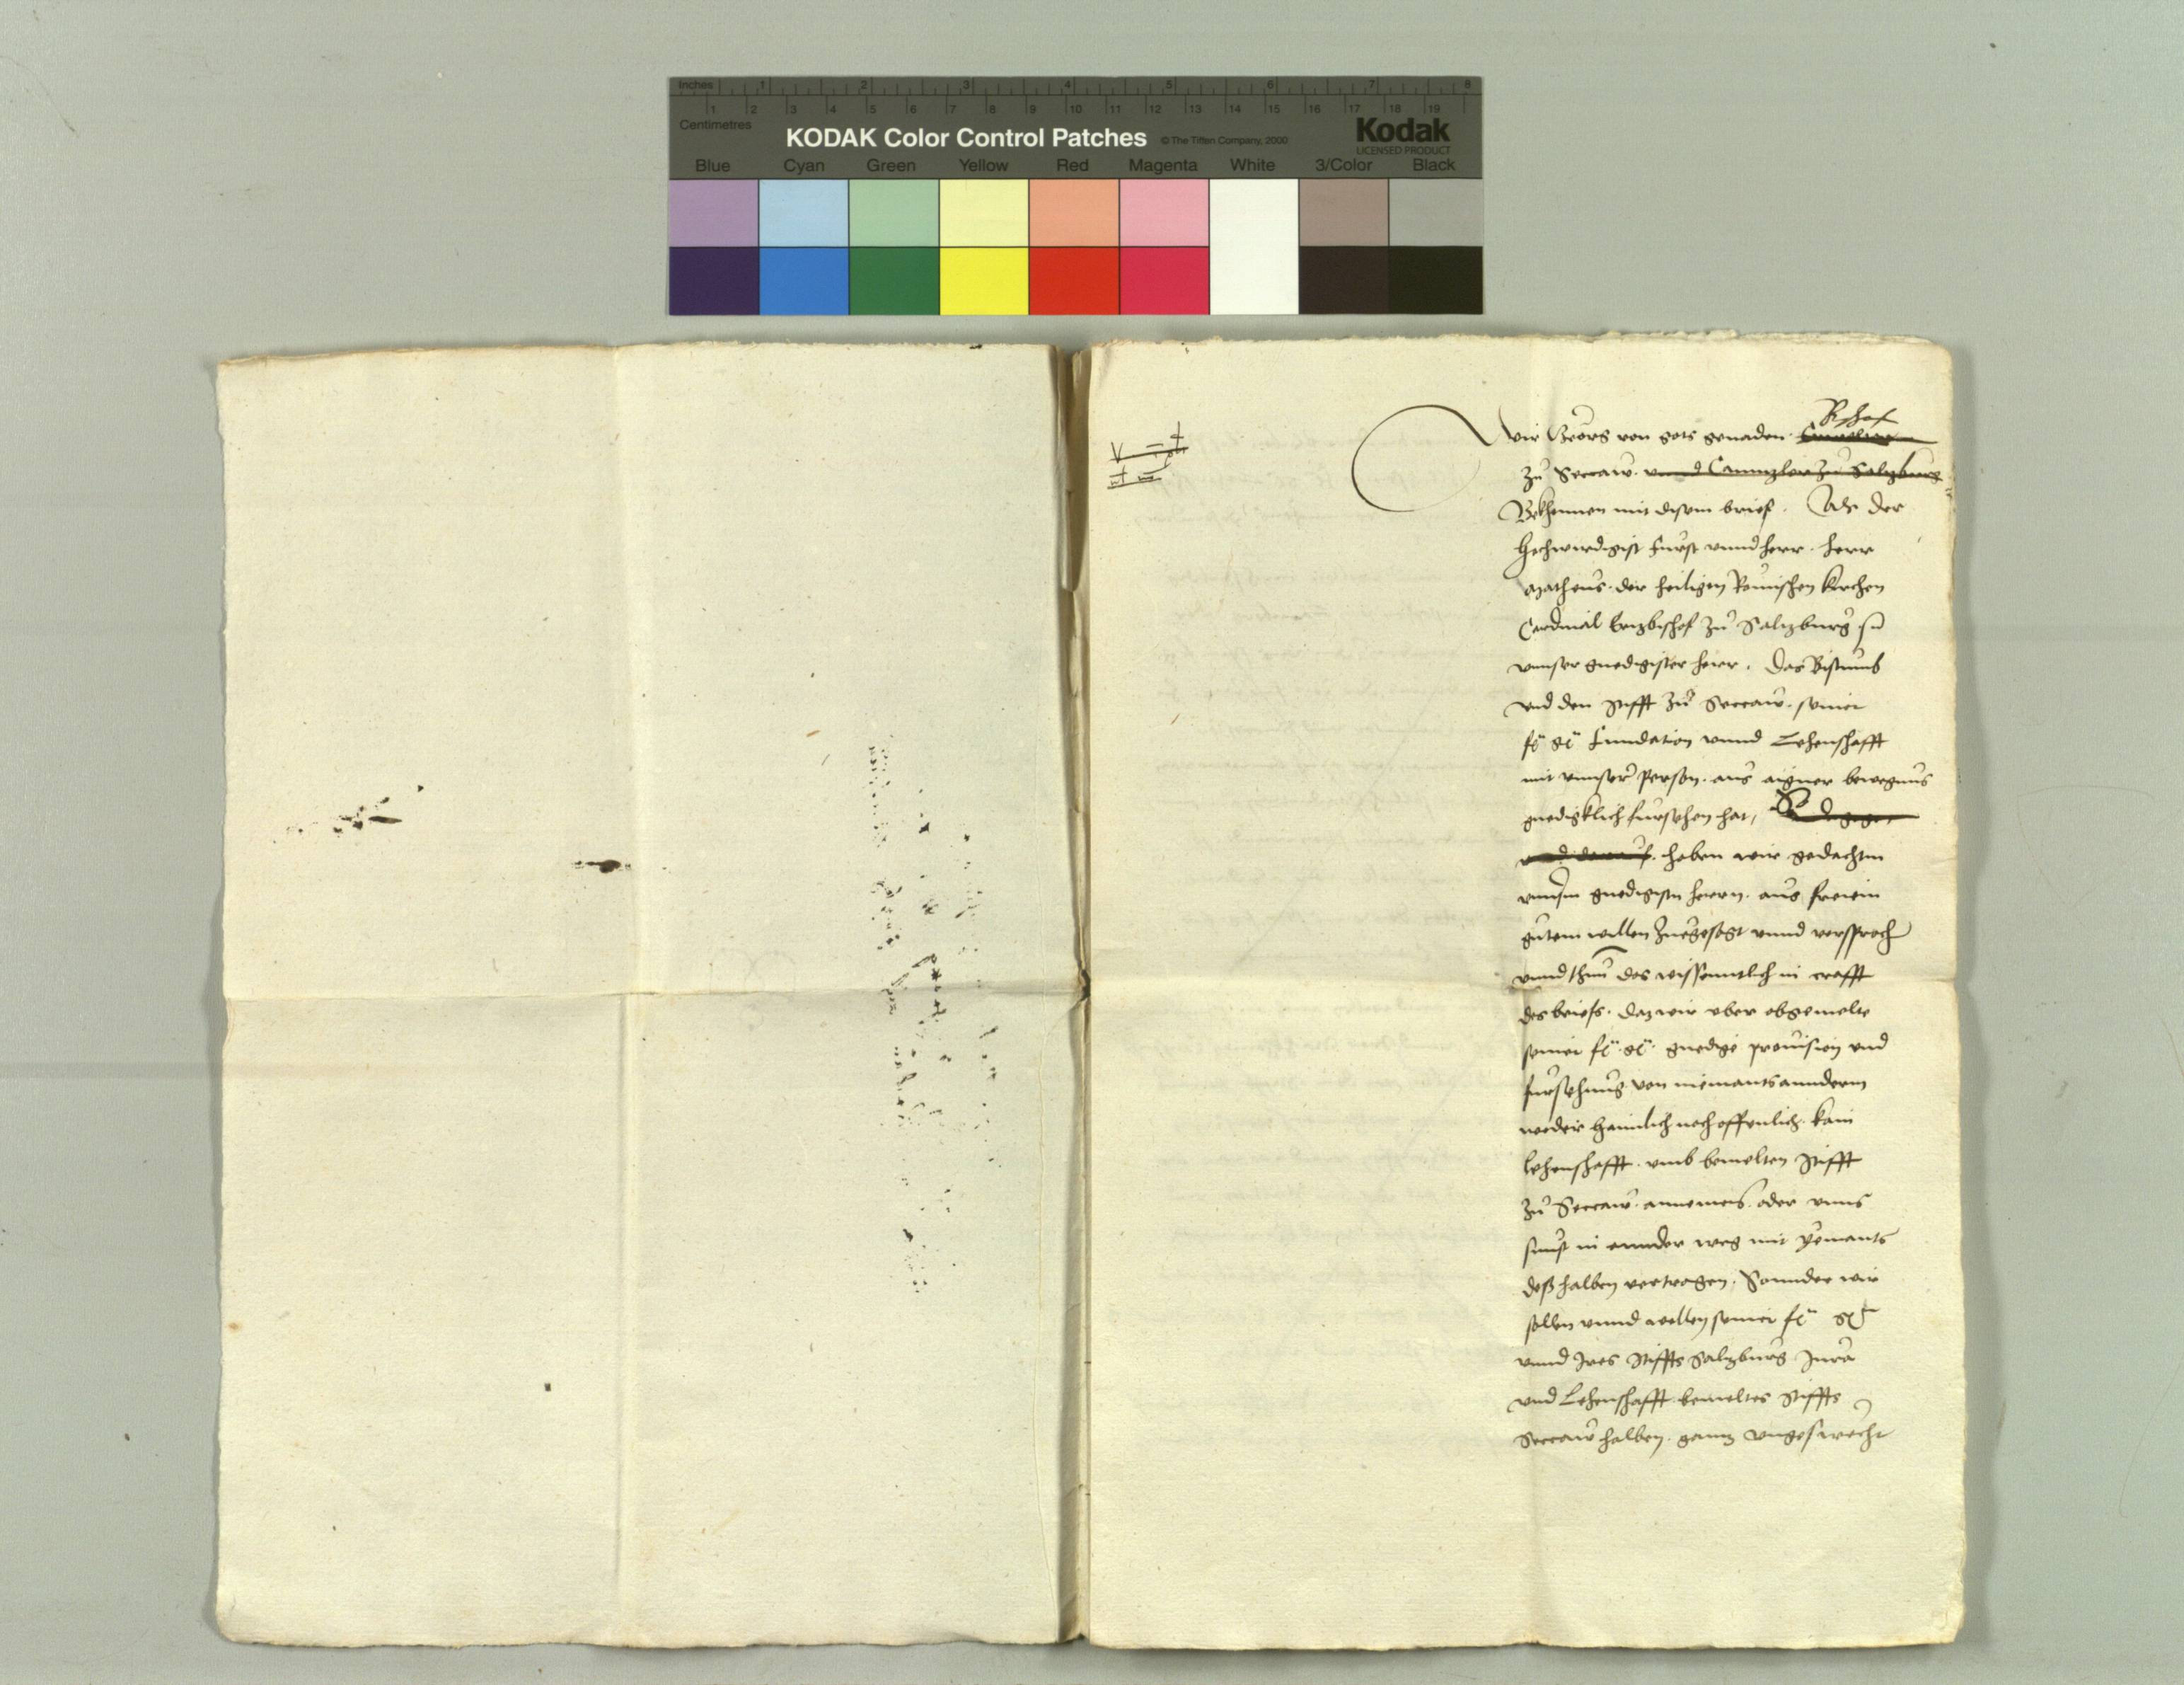 Inches 1 2 3 4 5 6 7 8
1 2 3 4 5 6 7 8 9 10 11 12 13 14 15 16 17 18 19
Centimetres
KODAK Color Control Patches © The Tiffen Company, 2000 Kodak
LICENSED PRODUCT
Blue Cyan Green Yellow Red Magenta White 3/Color Black
Bischof
Wir Georg von gots genaden
zu Seccaw. vnnd Cannzler zu Saltzburg
Bekhennen mit disem brief. Als der
Hochwirdigist Furst vnnd herr. herr
Matheus. der heiligen Römischen kirchen
Cardinal Ertzbischof zu Saltzburg
vnnser gnedigister herr. Das Bistumb
vnd den Stifft zu Seccaw. seiner
fn gn Fundation vnnd Lehenschafft
mit vnnser Person. aus aigner bewegnus
gnedigklich fursehen hat, dagegen
vnd darauf. haben wir gedachtm
vnnsm gnedigistn herrn. aus freiem
gutem willen zuegesagt vnnd versproch
vnnd thun das wissenntlich in crafft
des briefs. Daz wir vber obgemelte
seiner fn. gn. gnedige prouision vnd
fursehung von niemants annderm
weder haimlich noch offenlich. kain
lehenschafft. vmb bemelten Stifft
zu Seccaw. annemen. oder vnns
sunst in annder weg mit yemants
deßhalben vertragen. Sonnder wir
sollen vnnd wellen seiner fn gn
vnnd Ires Stiffts Saltzburg Jura
vnd Lehenschafft bemeltes Stiffts
Seccaw halben. gannz vngeswecht